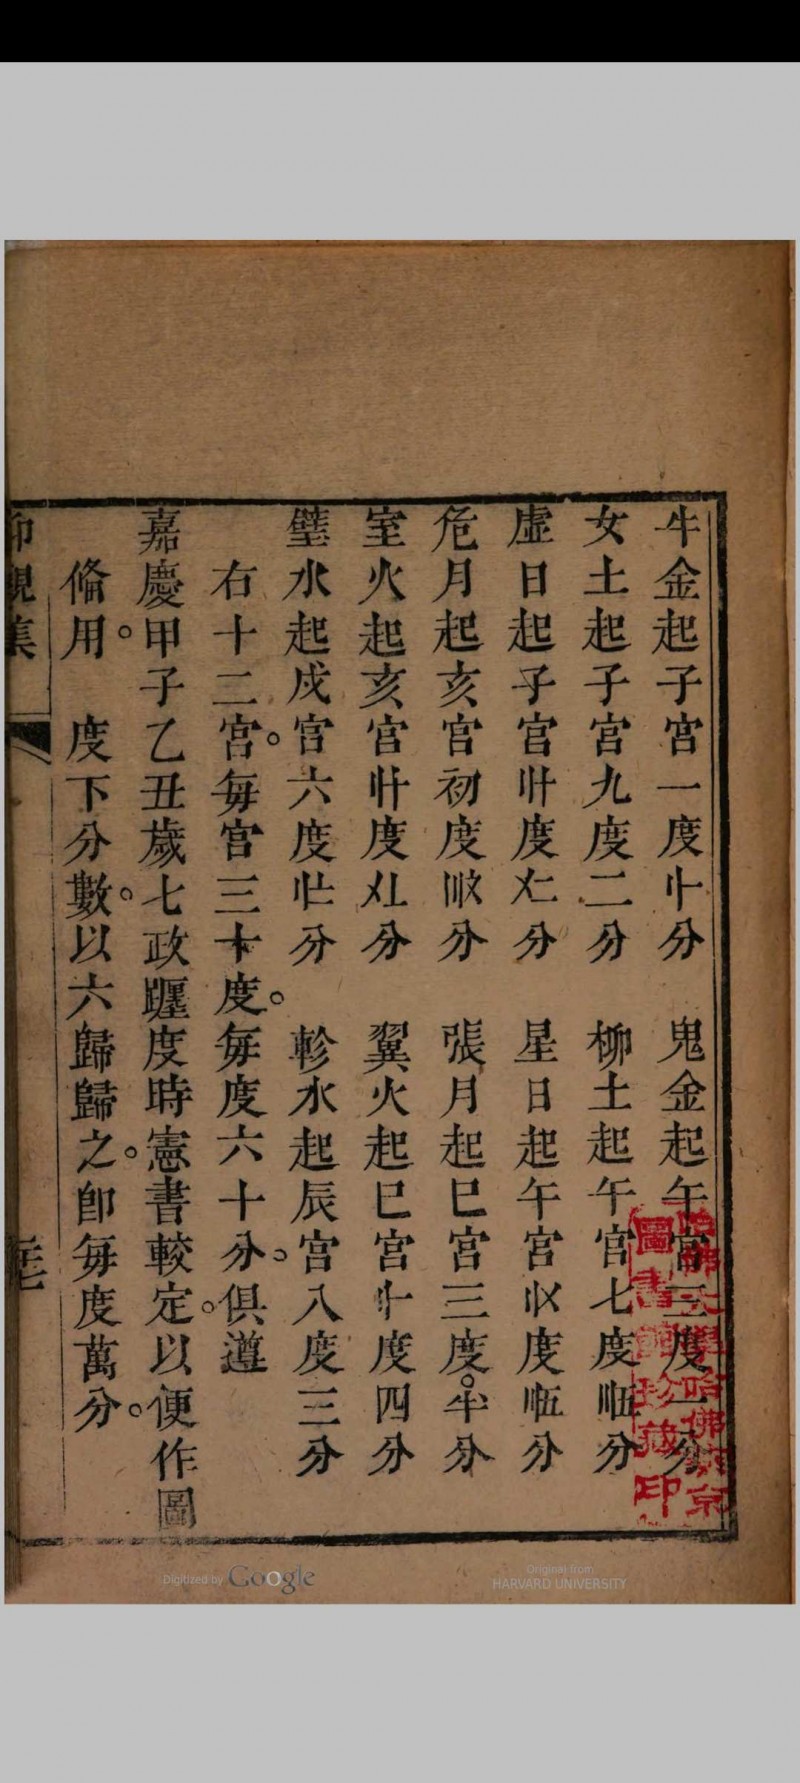 牛金起子宫一度分　鬼金起午宫三度分
女土起子宫九度二分　柳土起午宫七度分
虛日起子宫度分　星日起午宫度分
危月起亥宫初度分　張月起巳宫三度。分
室火起亥宫度分　翼火起巳宫度四分
壁水起戌宫六度分　軫水起辰宫八度三分
右十二宫。每宫三十度。每度六十分。俱遵
嘉慶甲子乙丑歲七政躔度時憲書較定。以便作圖
偹用。　度下分數。以六歸歸之。卽每度萬分。
仰觀集
哈佛大學哈佛燕京
圖書館珍藏印
Digitized by Google
Original from
HARVARD UNIVERSITY